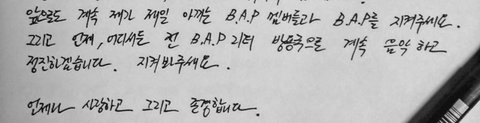 앞으로도 계속 제가 제일 아끼는 B.A.P 멤버들과 B.A.P를 지켜주세요.
그리고 언제, 어디서든 전 B.A.P 리더 방용국으로 계속 음악 하고
정진하겠습니다. 지켜봐주세요.
언제나 사랑하고 그리고 존경합니다.